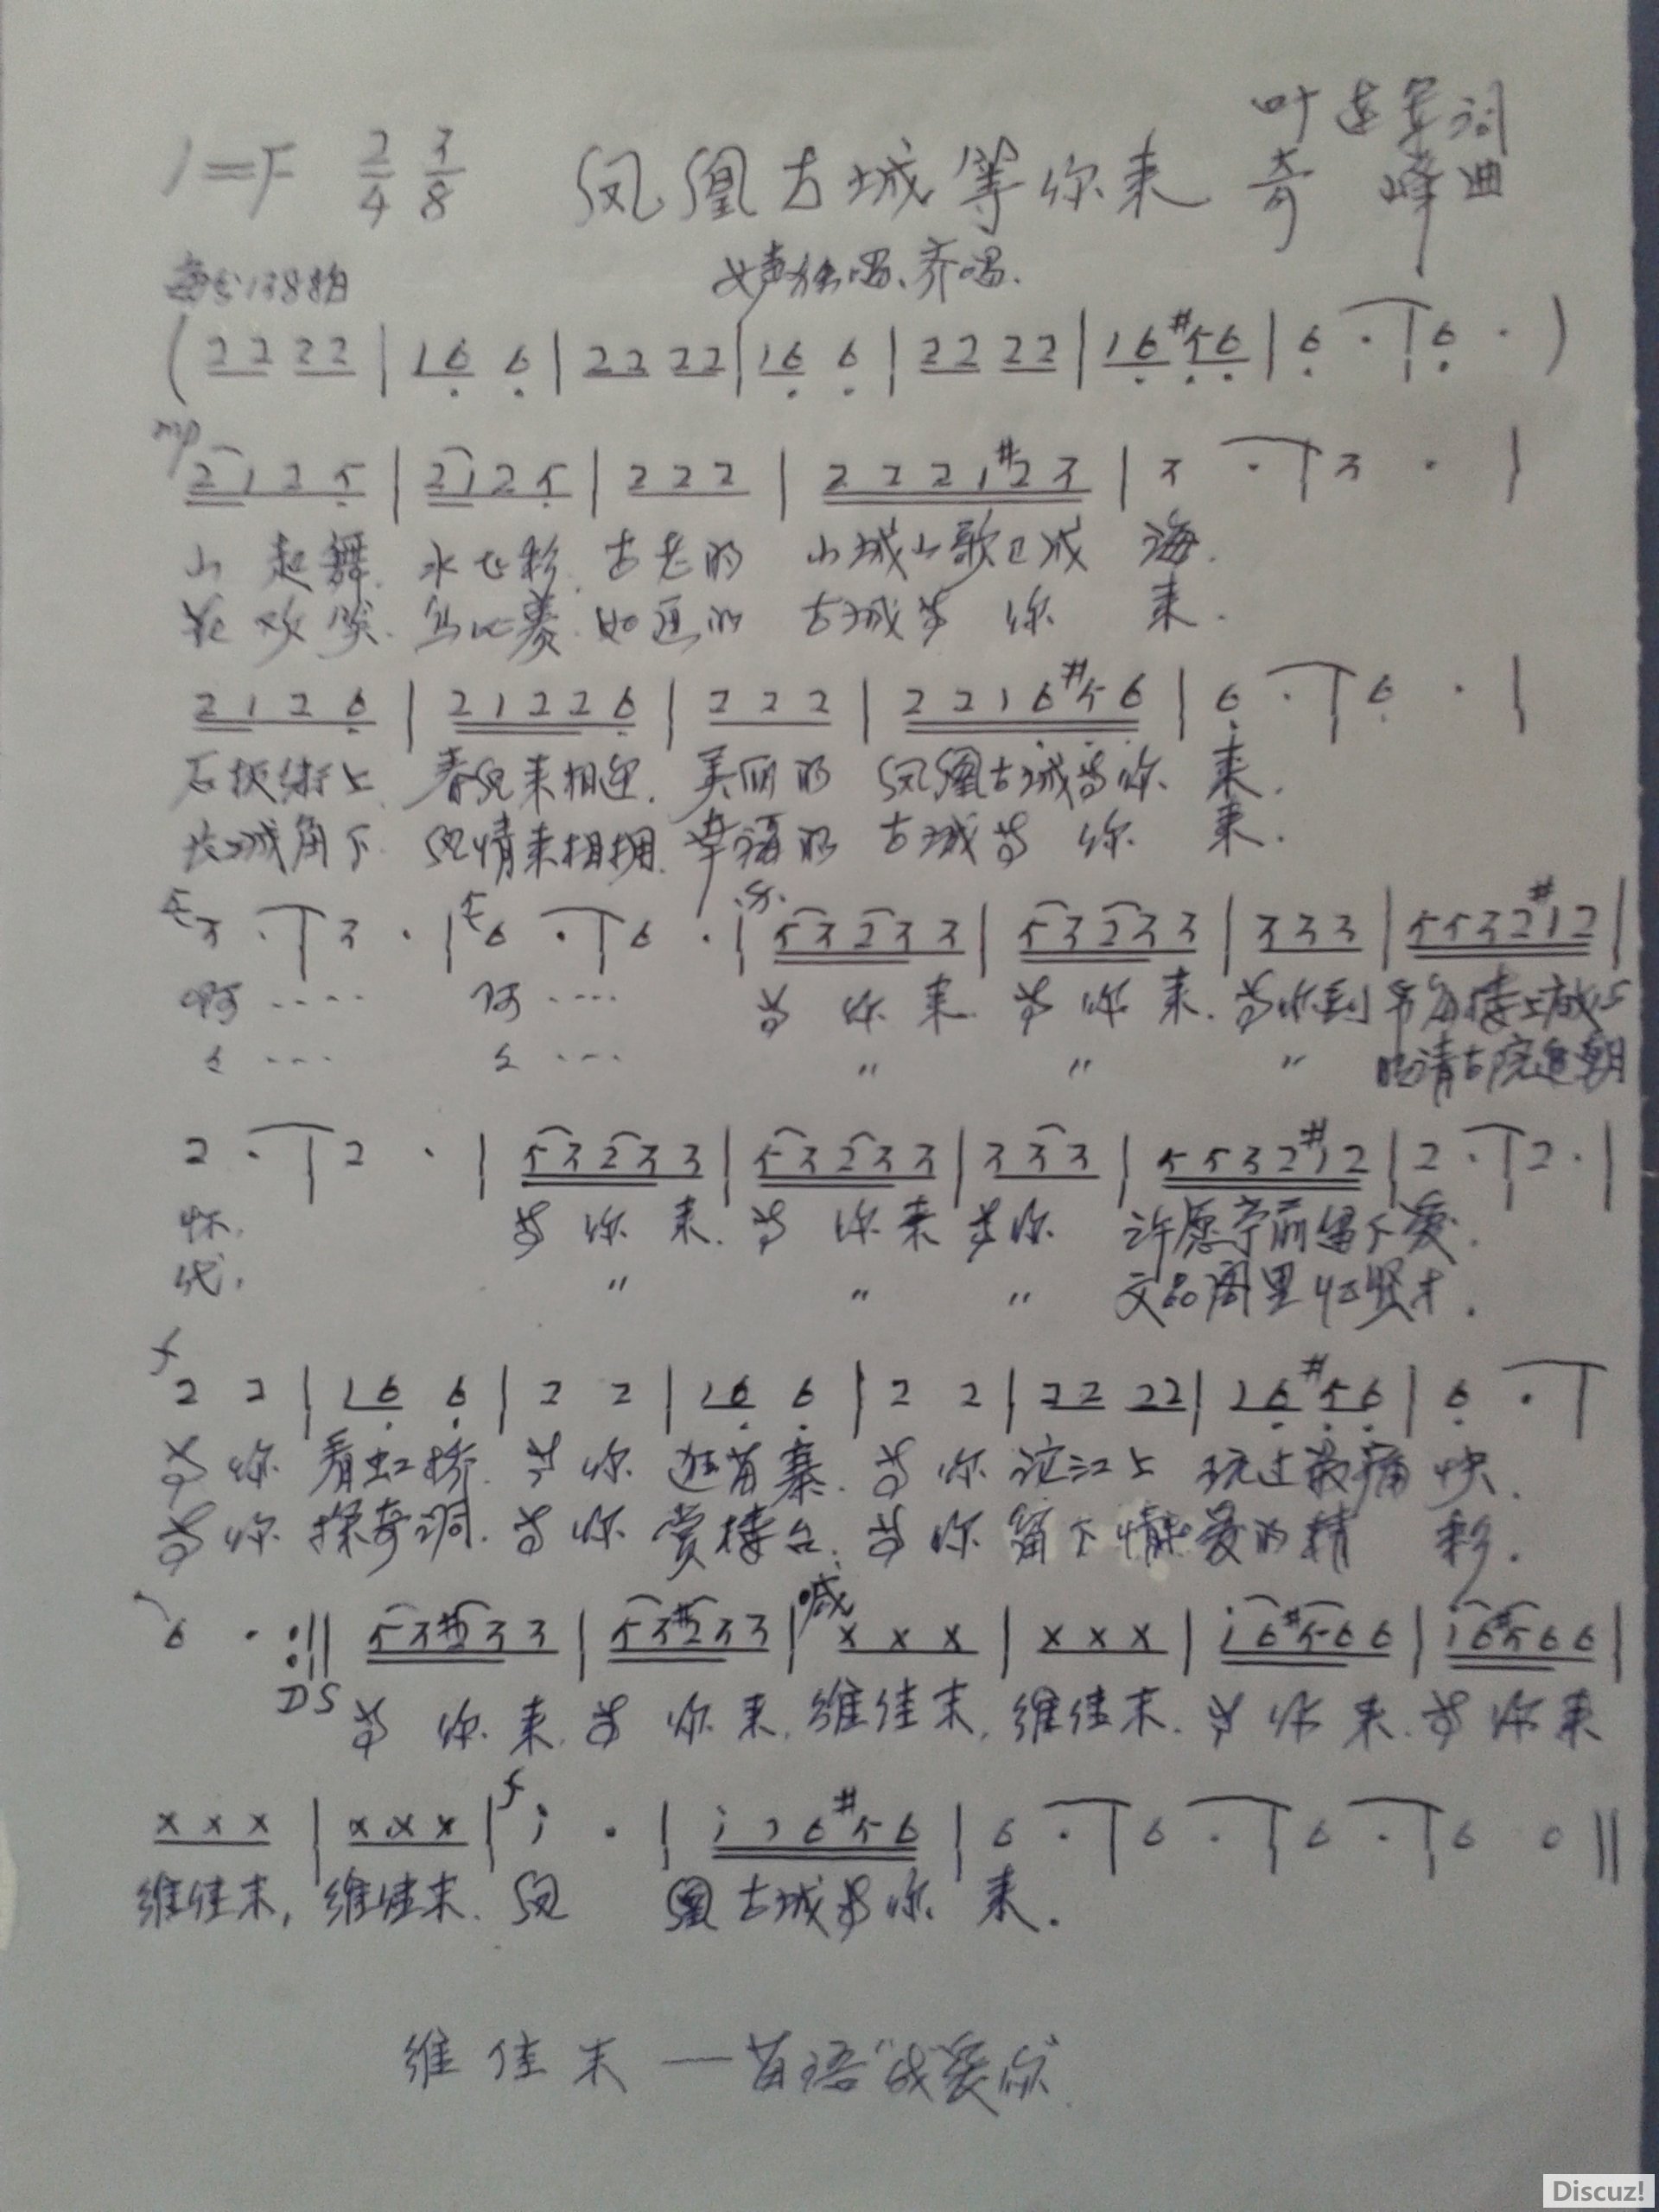 叶 军词
1=F 2/4 3/8 凤凰古城等你来 奇峰曲
每分138拍 女声独唱、齐唱.
(22 22 | 16 6 | 22 22 | 16 6 | 22 22 | 16 #56 | 6 · | 6 · )
mp
2125 | 2125 | 222 | 2221#23 | 3 · | 3 · |
山起舞. 水飞彩. 古老的 山城山歌已成海.
花欢笑. 鸟比赛. 如画的 古城等你来.
2126 | 21226 | 222 | 2216#56 | 6 · | 6 · |
石板街上 春风来相迎. 美丽的 凤凰古城等你来.
古城角下 风情来相拥. 幸福的 古城等你来.
3 · | 3 · | 6 · | 6 · | 53233 | 53233 | 333 | 5532#12 |
啊 ···· 阿 ···· 等你来. 等你来. 等你到 楼上
〃 〃 〃 请古院 朝
2 · | 2 · | 53233 | 53233 | 333 | 5532#12 | 2 · | 2 · |
怀. 等你来. 等你来 等你 许愿亭前留下爱.
代. 〃 〃 〃 文品阁里 贤才.
f
2 2 | 16 6 | 2 2 | 16 6 | 2 2 | 22 22 | 16#56 | 6 · |
等你看虹桥. 等你逛苗寨. 等你沱江上 玩过最痛快.
等你探奇洞. 等你赏楼台. 等你留下情爱的精彩.
6 · :|| 53#233 | 53#233 | 喊 xxx | xxx | i6#566 | i6#566 |
DS
等你来. 等你来. 维佳末, 维佳末. 等你来. 等你来
xxx | xxx | f i · | ii6#56 | 6 · | 6 · | 6 · | 6 0 ||
维佳末, 维佳末. 凤凰古城等你来.
维佳末——苗语"我爱你"
Discuz!